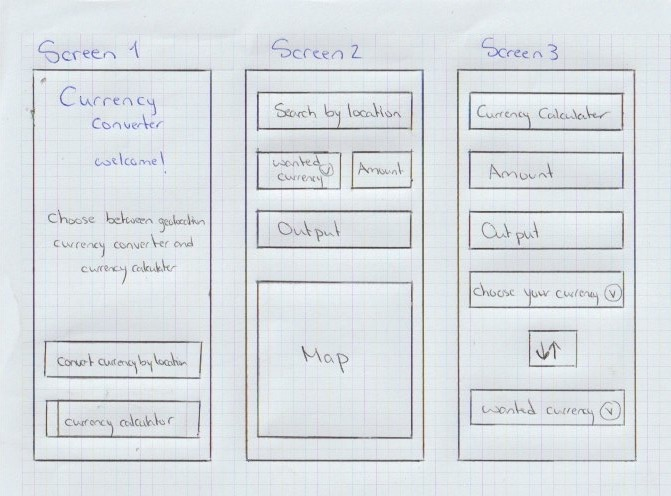 Screen 1
Currency
Converter
welcome!
Choose between geolocation
currency converter and
currency calculator
convert currency by location
currency calculator
Screen 2
Search by location
wanted
currency
Amount
Output
Map
Screen 3
Currency Calculator
Amount
Output
choose your currency
wanted currency